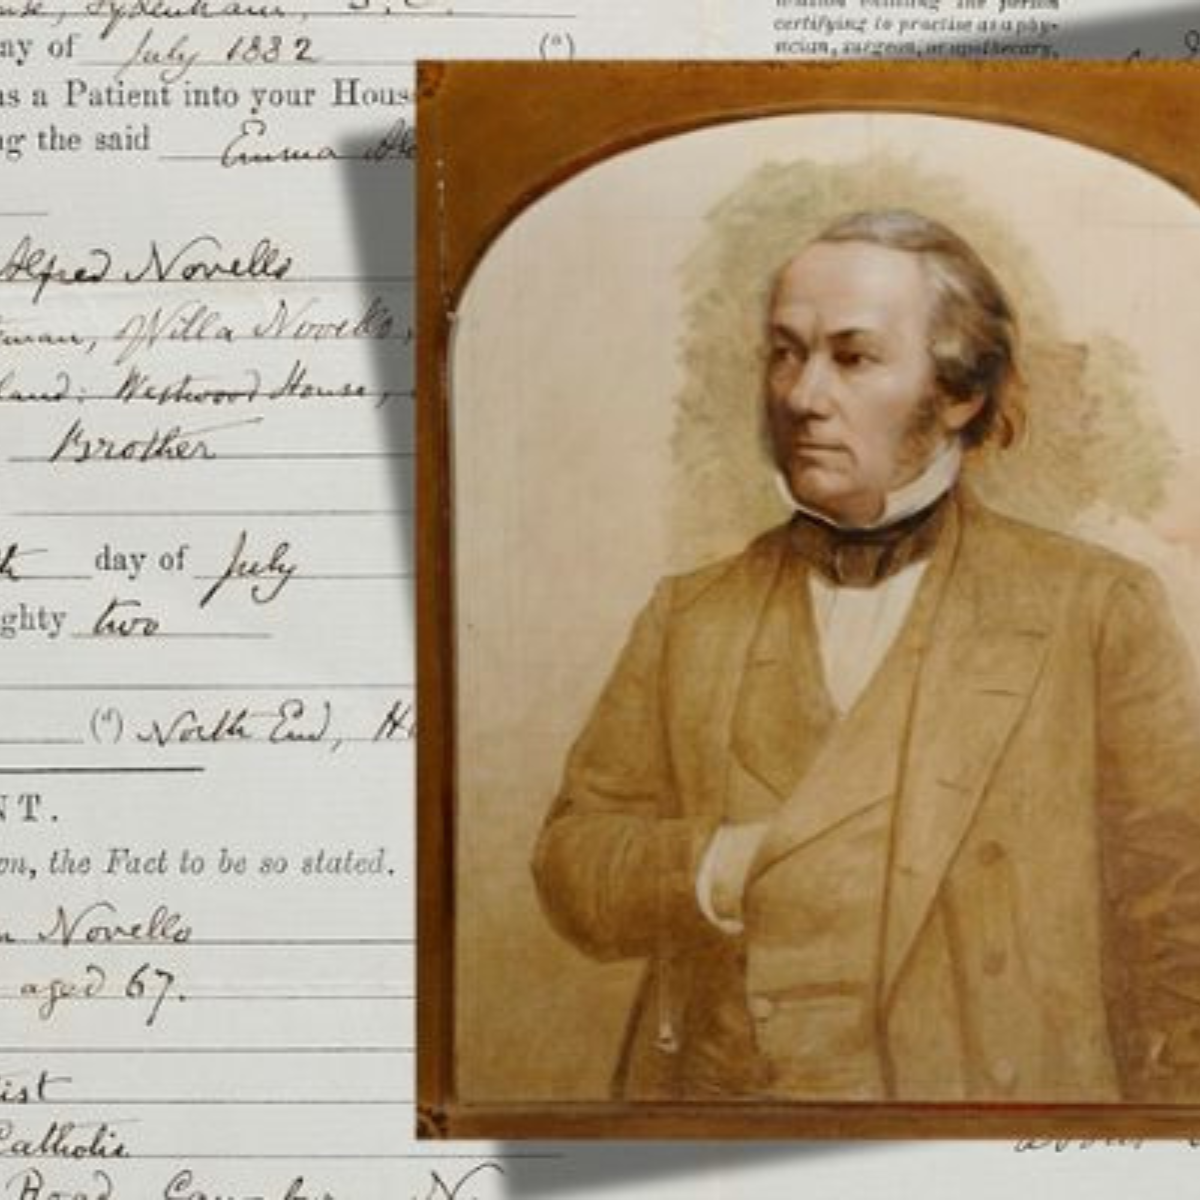 Sydenham, S.E.
day of July 1882 (a)
as a Patient into your Hous
ng the said Emma
Alfred Novello
Villa Novello,
land: Westwood House,
Brother
th day of July
ghty two
(d) North End, H
NT.
on, the Fact to be so stated.
Novello
aged 67.
ist
Catholic
Road N.
certifying to practise as a phy-
sician, surgeon, or apothecary,